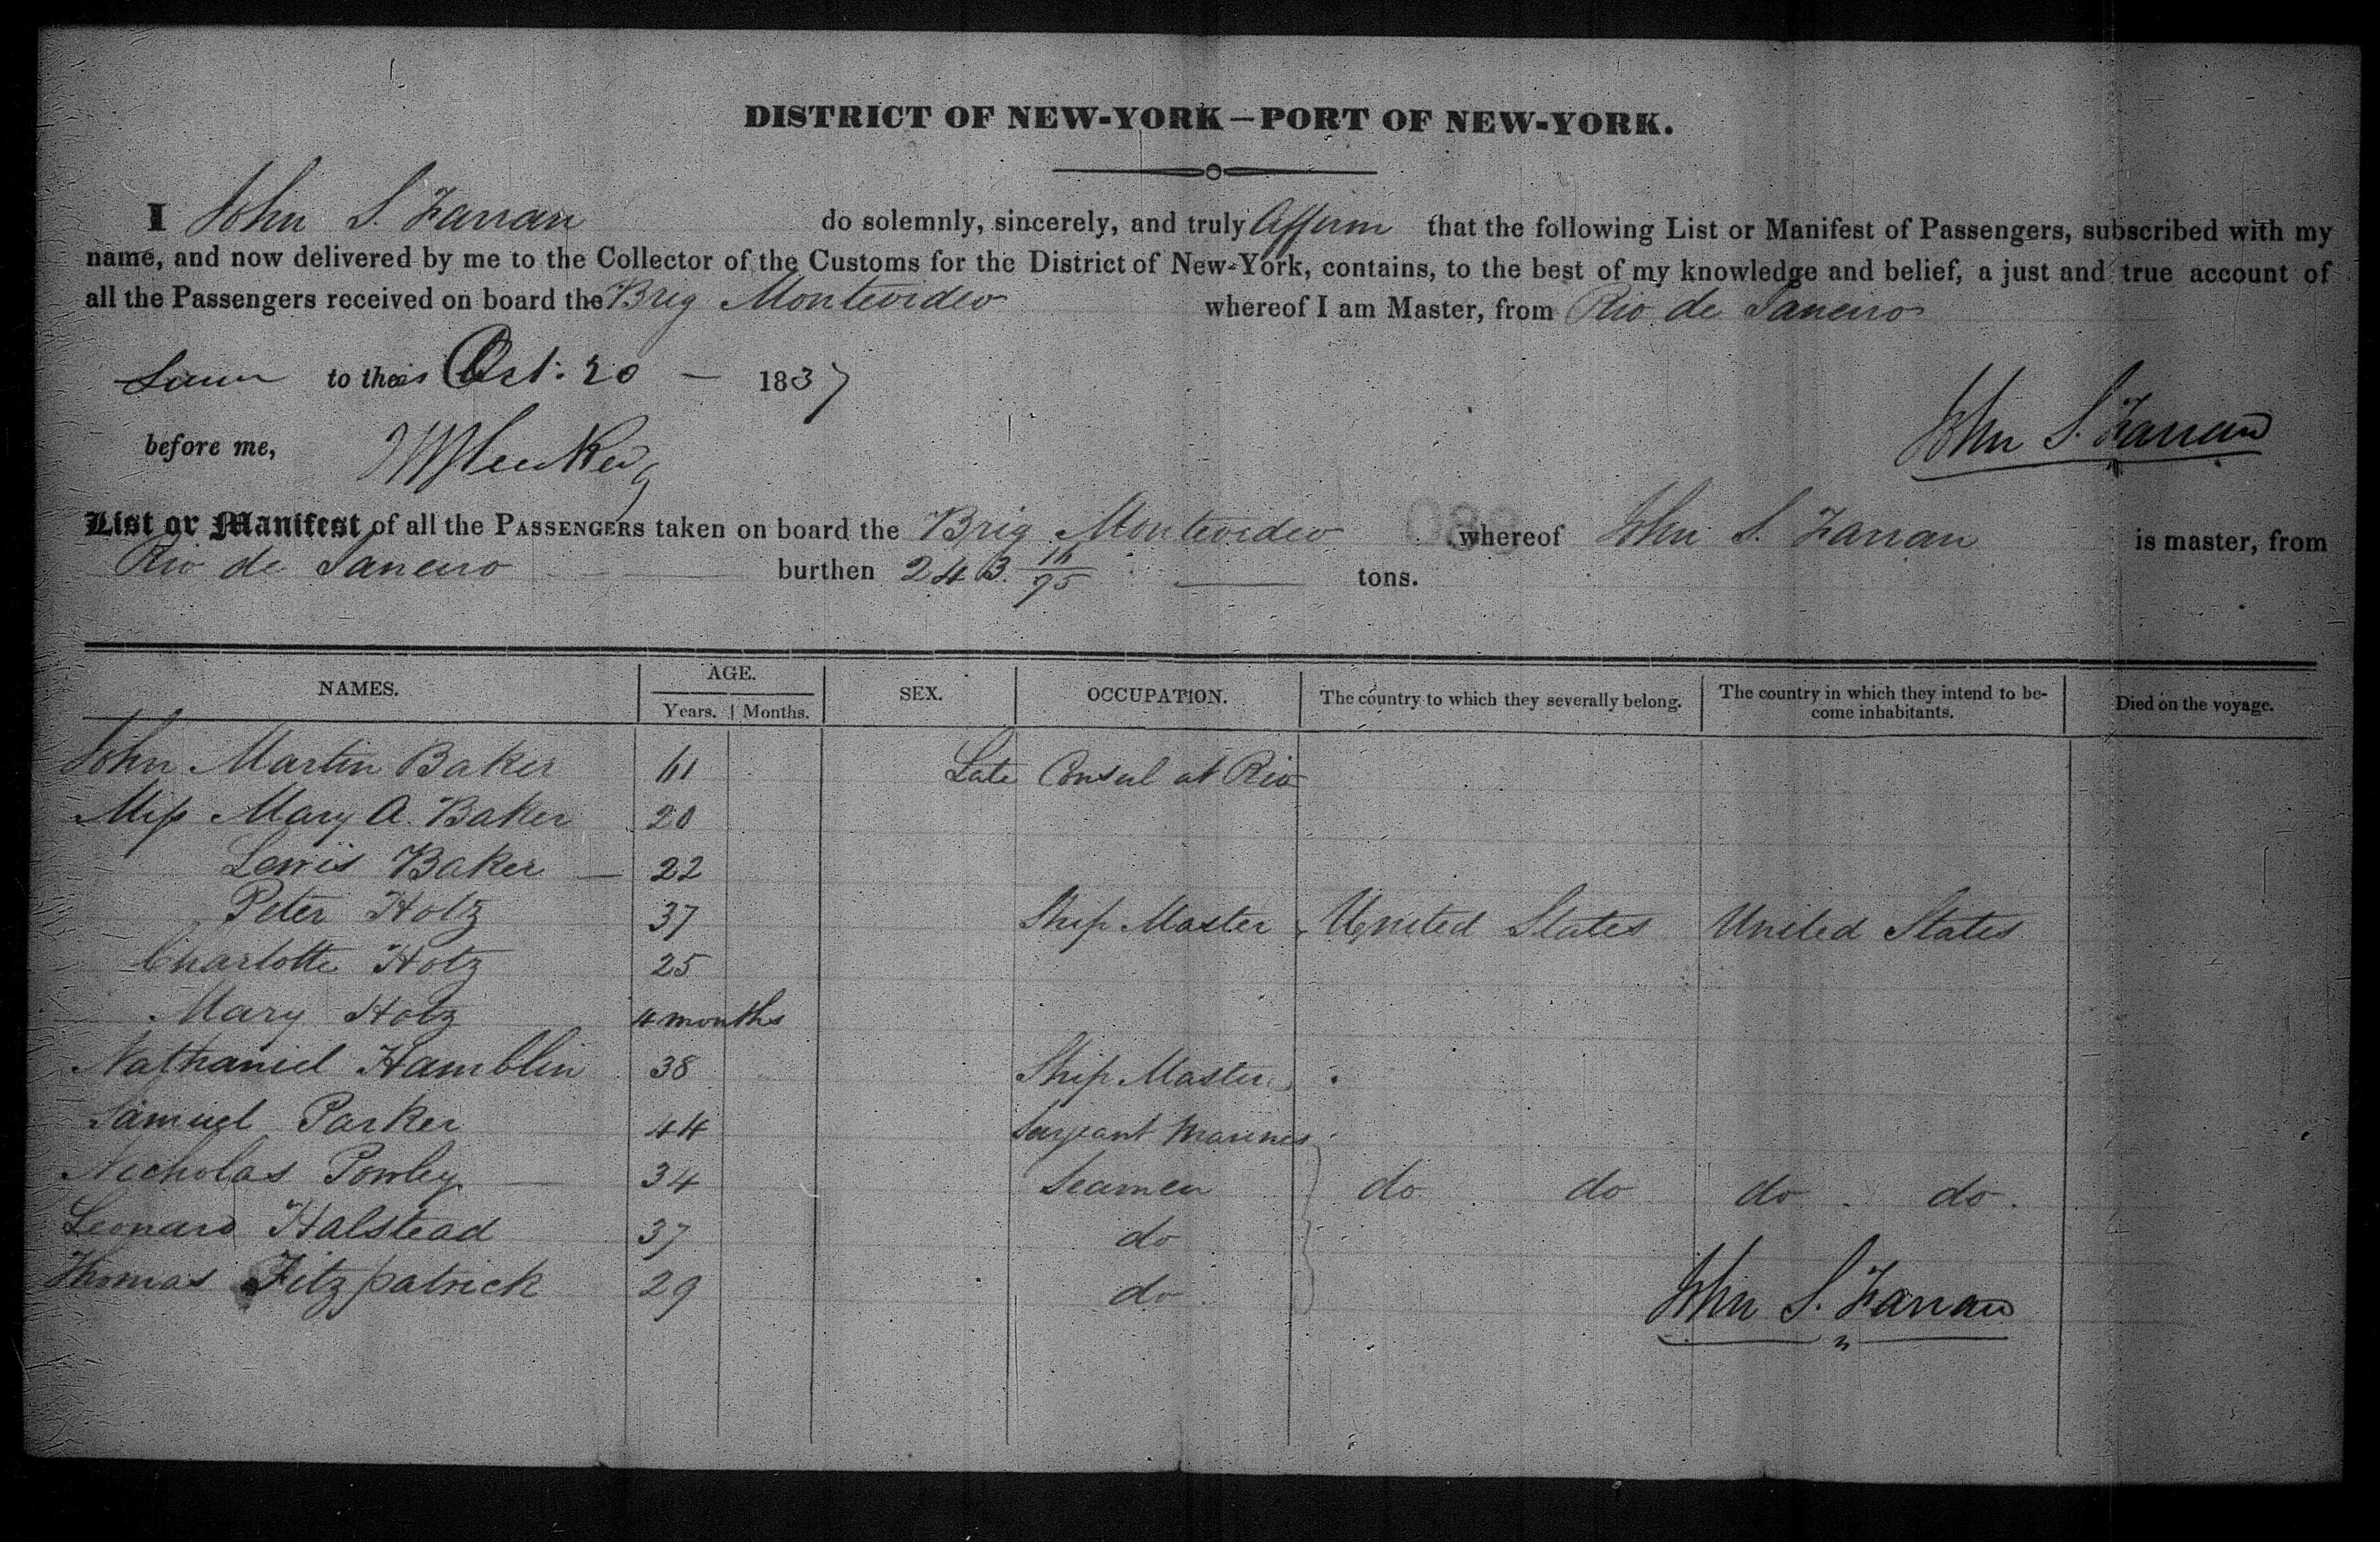 DISTRICT OF NEW-YORK—PORT OF NEW-YORK.
I John S. Farran do solemnly, sincerely, and truly Affirm that the following List or Manifest of Passengers, subscribed with my
name, and now delivered by me to the Collector of the Customs for the District of New-York, contains, to the best of my knowledge and belief, a just and true account of
all the Passengers received on board the Brig Montevideo whereof I am Master, from Rio de Janeiro
to the Oct. 20 — 1837
John S. Farran
before me,
List or Manifest of all the PASSENGERS taken on board the Brig Montevideo whereof John S. Farran is master, from
Rio de Janeiro burthen 243 11/95 tons.
NAMES. AGE. SEX. OCCUPATION. The country to which they severally belong. The country in which they intend to be-
come inhabitants. Died on the voyage.
Years. Months.
John Martin Baker 61 Late Consul at Rio
Miss Mary A. Baker 20
Lewis Baker — 22
Peter Hotz 37 Ship Master United States United States
Charlotte Hotz 25
Mary Hotz 4 months
Nathaniel Hamblin 38 Ship Master
Samuel Parker 44 Serjeant Marines
Nicholas Powley 34 Seamen do do do do.
Leonard Halstead 37 do
Thomas Fitzpatrick 29 do
John S. Farran